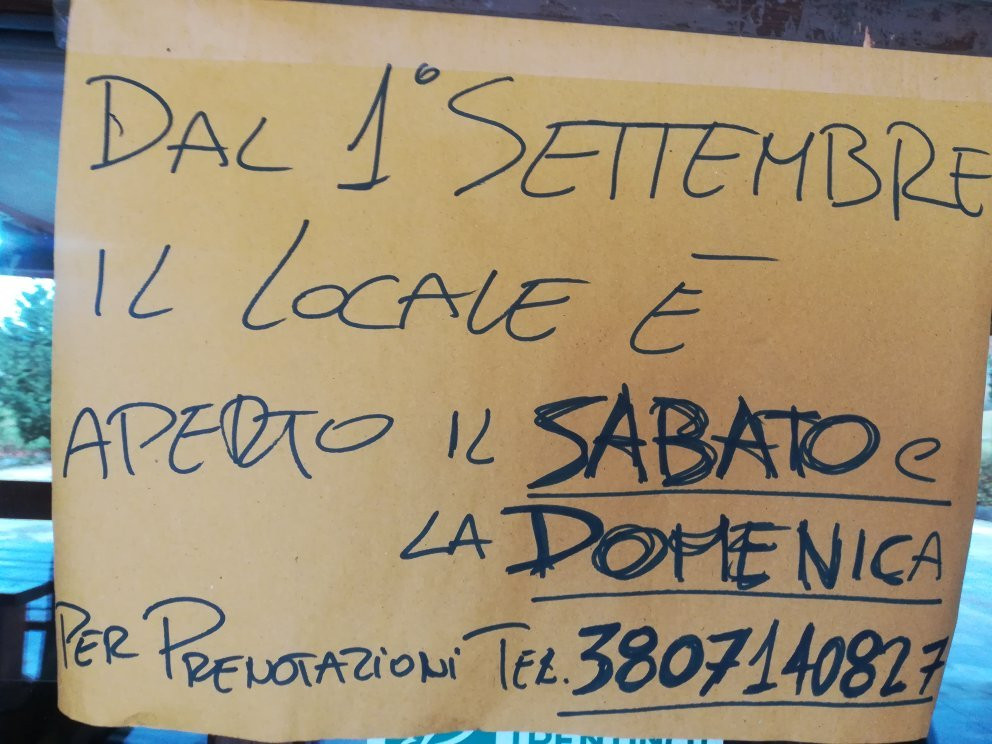 DAL 1° SETTEMBRE
IL LOCALE È
APERTO IL SABATO e
LA DOMENICA
PER PRENOTAZIONI TEL. 3807140827